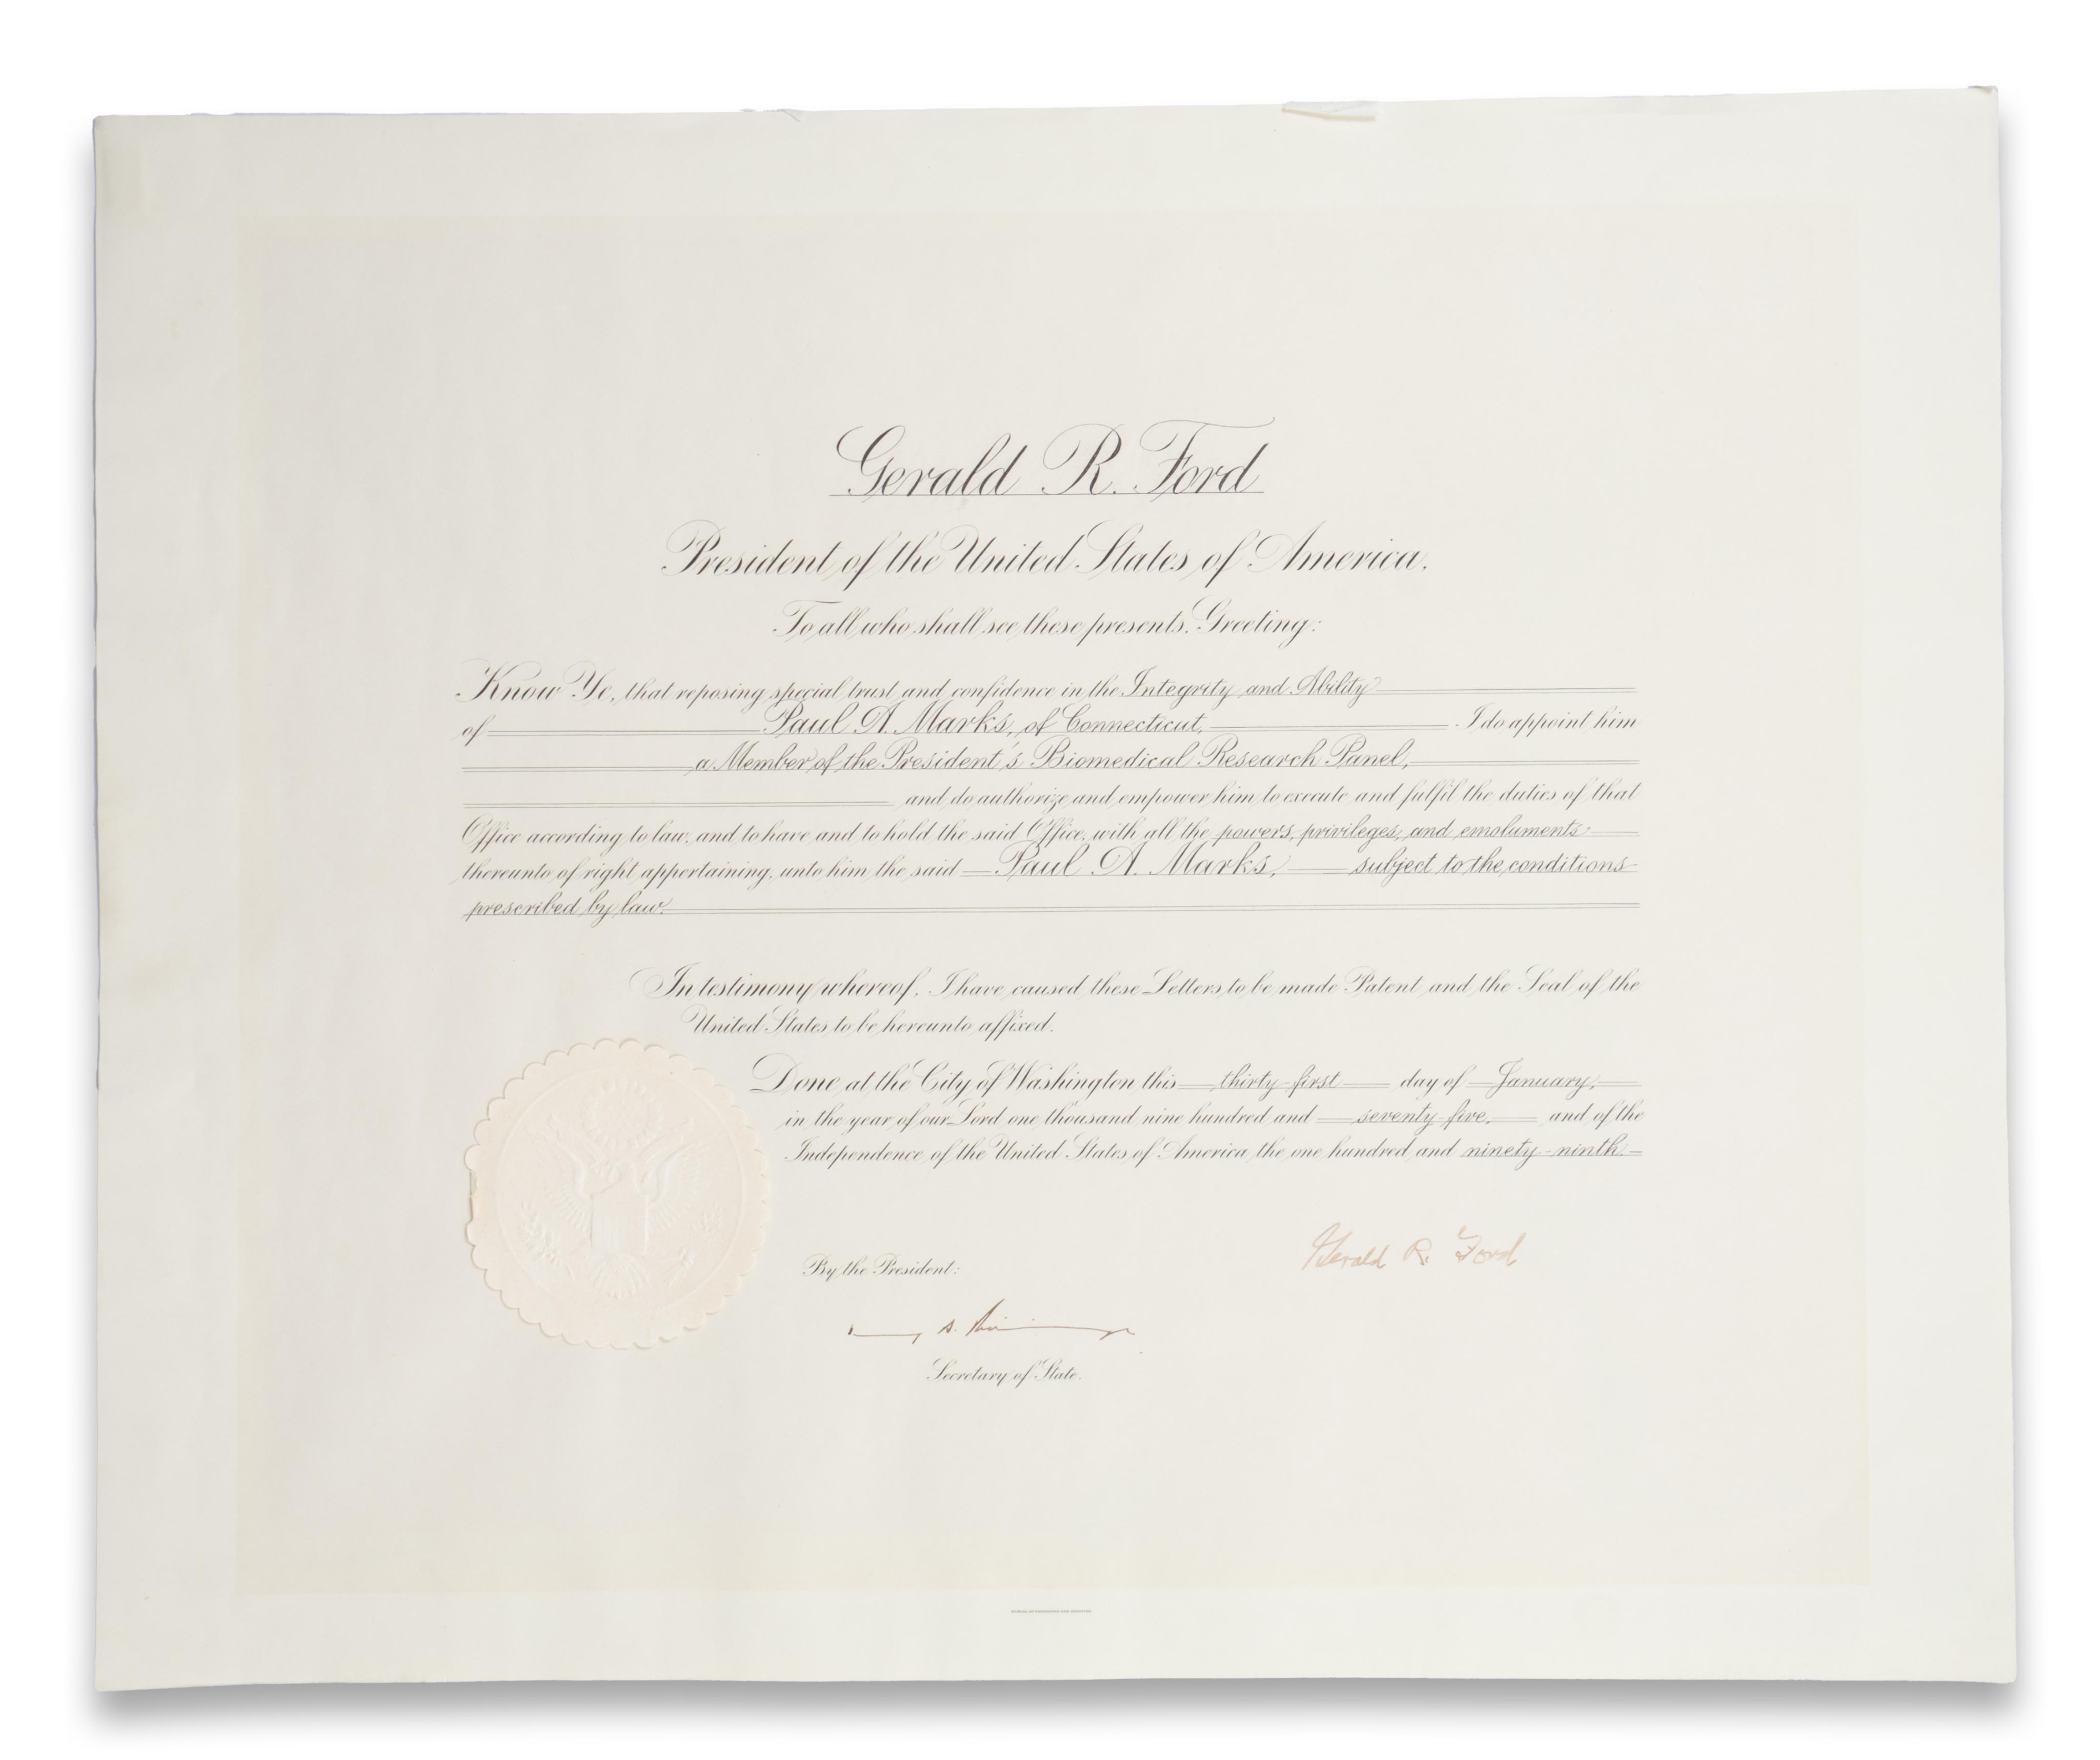 Gerald R. Ford
President of the United States of America.
To all who shall see these presents, Greeting:
Know Ye, that reposing special trust and confidence in the Integrity and Ability
of Paul A. Marks, of Connecticut, I do appoint him
a Member of the President's Biomedical Research Panel,
and do authorize and empower him to execute and fulfil the duties of that
Office according to law, and to have and to hold the said Office, with all the powers, privileges, and emoluments
thereunto of right appertaining, unto him the said Paul A. Marks, subject to the conditions
prescribed by law.
In testimony whereof, I have caused these Letters to be made Patent and the Seal of the
United States to be hereunto affixed.
Done at the City of Washington this thirty-first day of January,
in the year of our Lord one thousand nine hundred and seventy-five, and of the
Independence of the United States of America the one hundred and ninety-ninth.
Gerald R. Ford
By the President:
Secretary of State.
BUREAU OF ENGRAVING AND PRINTING